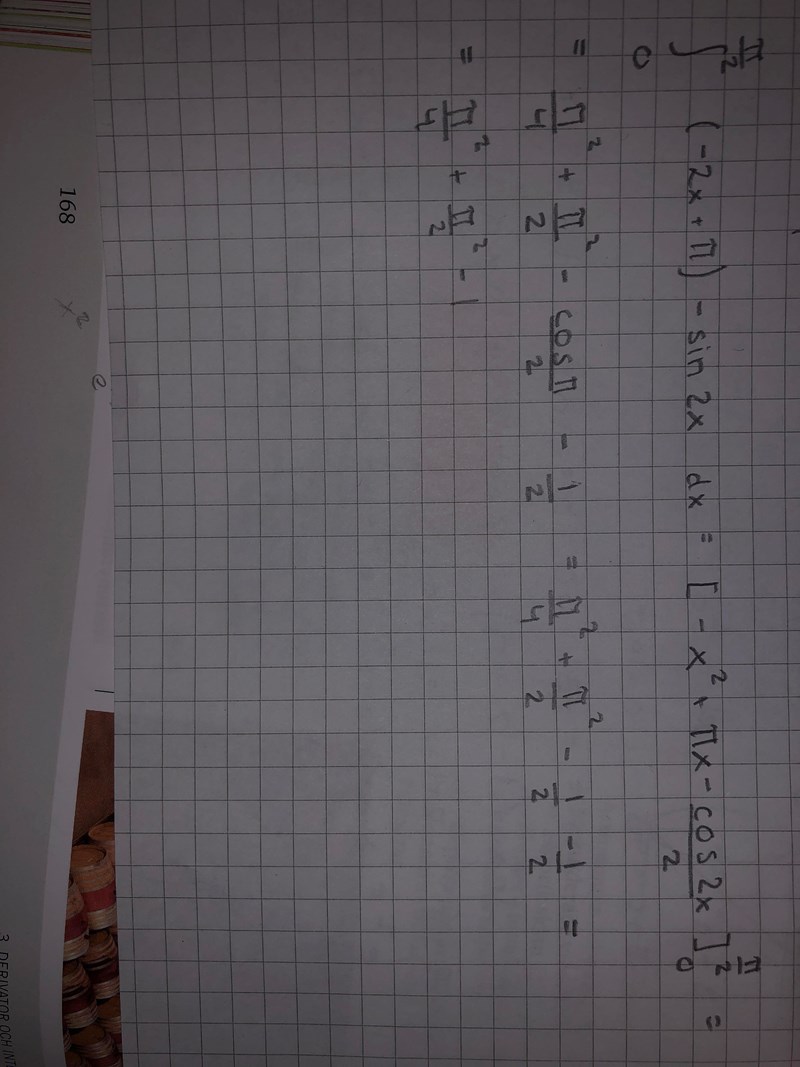 ∫₀^(π/2) (-2x + π) - sin 2x dx = [ - x² + πx - cos 2x/2 ]₀^(π/2) =
= π²/4 + π²/2 - cos π/2 - 1/2 = π²/4 + π²/2 - 1/2 -1/2 =
= π²/4 + π²/2 - 1
168
x²
e
3 DERIVATOR OCH